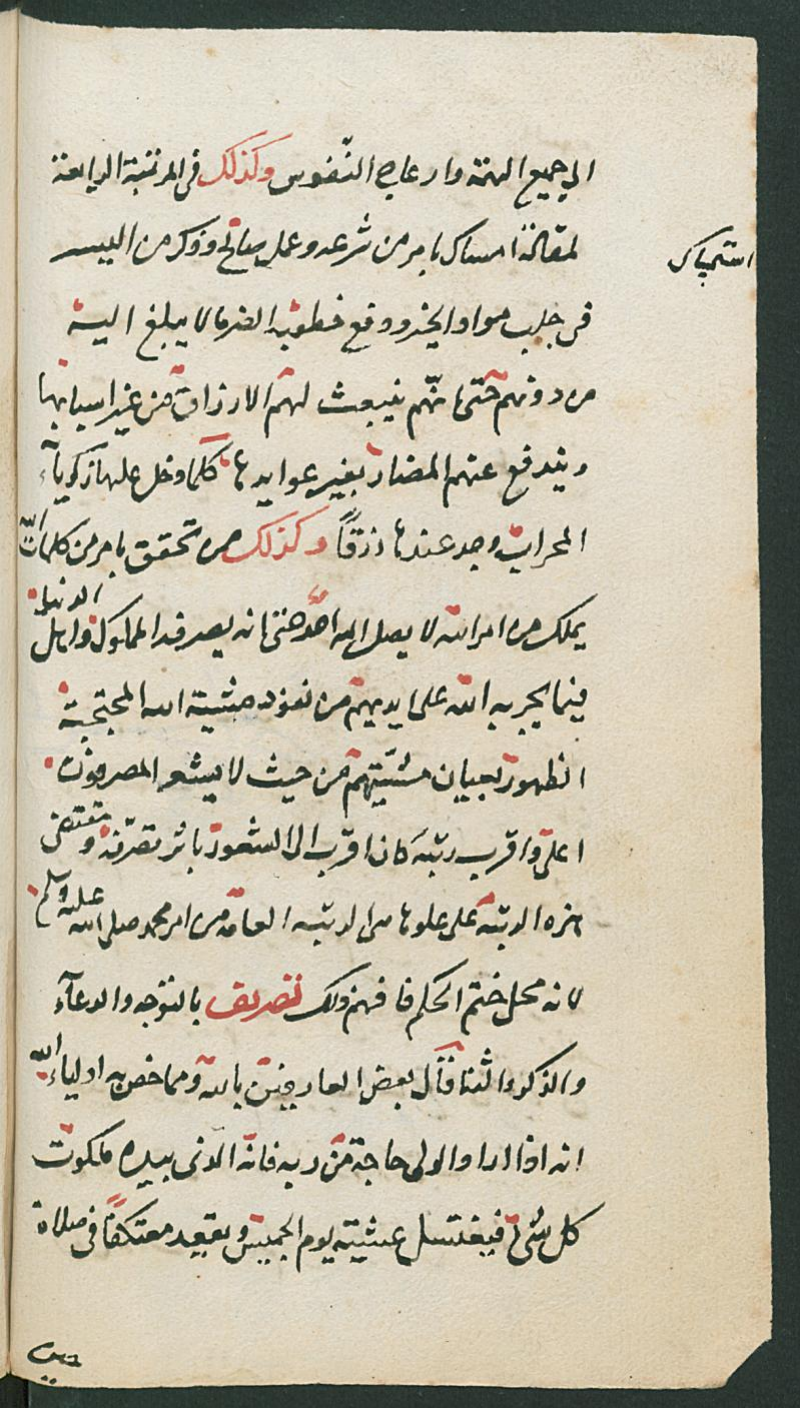 الي جميع الهمة وارعاج النّفوس وكذلك في المرتبة الرابعة
لمقالة امساك بامر من شرعه وعمل صالح وذكر من اليسر
استمساك
في جلب مواد الخير ووقع خطوب الضر ما لا يبلغ اليه
من دونهم حتى انهم ينبعث لهم الارزاق من غير اسبابها
ويندفع عنهم المضار بغير عوايدها كلما دخل عليها زكريا
المحراب وجد عندها رزقاً وكذلك من تحقق بامر من كلمات الله
يملك من امر الله لا يصل اليه احد حتى انه يصرف الملوك واهل الدنيا
فيما يجريه الله على ايديهم من نفوذ مشيته الله المحتجبة
الظهور بعيان مشيّتهم من حيث لا يشعر المصرفون
اعلى واقرب رتبة كان اقرب الى الشعور باثر تصرفه ومقتضى
هذه الرتبة على علوها من الرتبه العامة من امر محمد صلى الله عليه وسلم
لانه محل ختم الحكم فافهم ذلك تصريف بالتوجه والدعآء
والذكر والثنا قال بعض العارفين بالله ومما خص به اولياء الله
انه اذا اراد الولي حاجة من ربه فانه الذي بيده ملكوت
كل شيء فيغتسل عشية يوم الخميس ويقعد معتكفا في صلاة